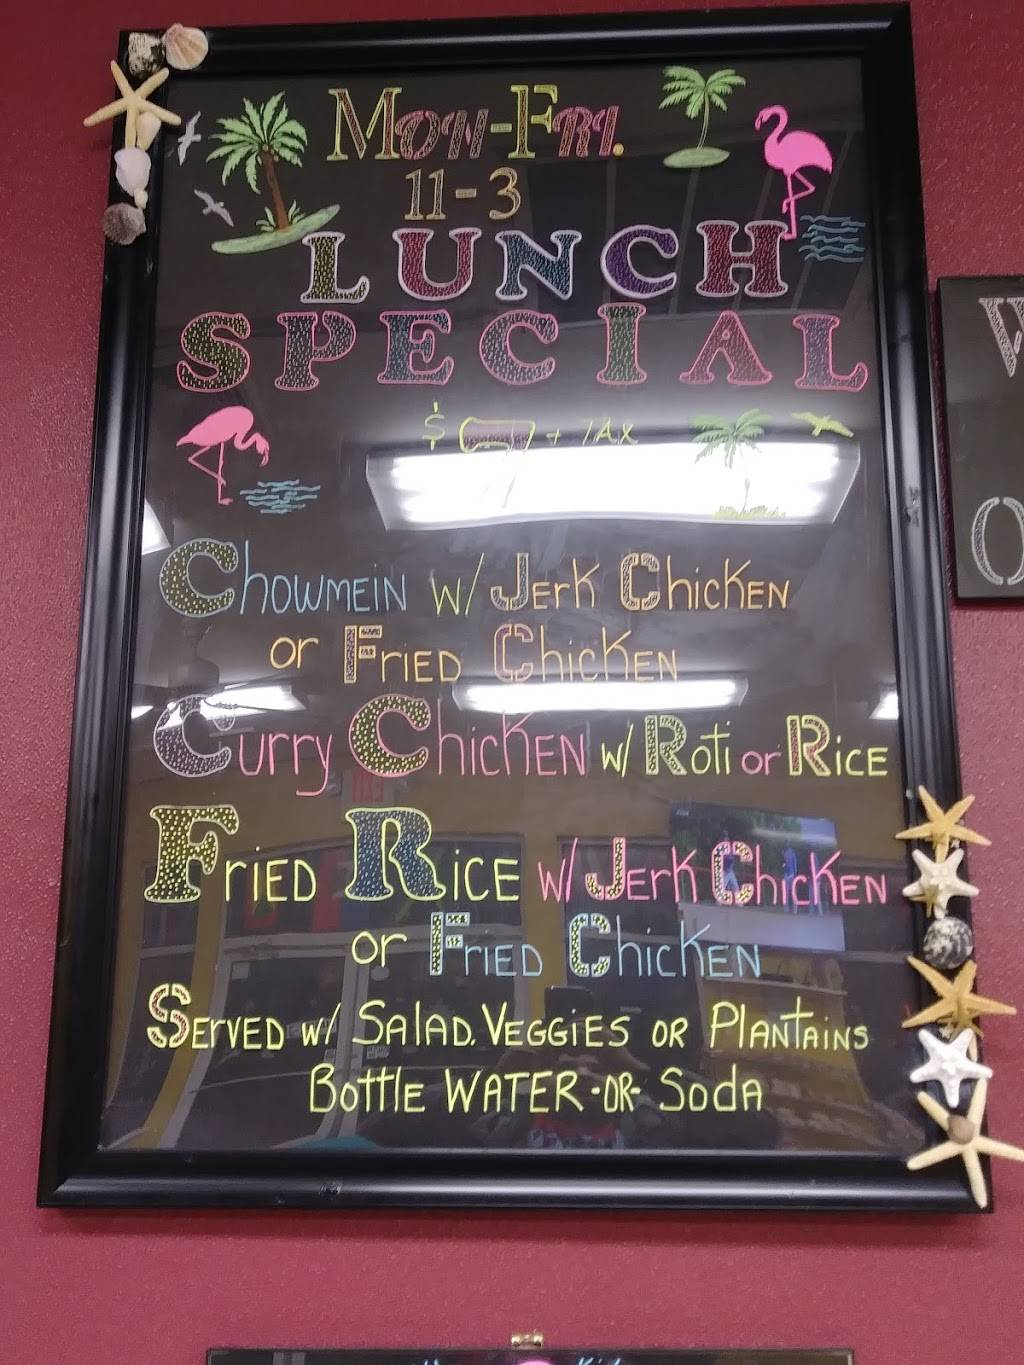 Mon-Fri.
11-3
LUNCH
SPECIAL
$7 + TAX
Chowmein w/ Jerk Chicken
or Fried Chicken
Curry Chicken w/ Roti or Rice
Fried Rice w/ Jerk Chicken
or Fried Chicken
Served w/ Salad, Veggies or Plantains
Bottle WATER -OR- Soda